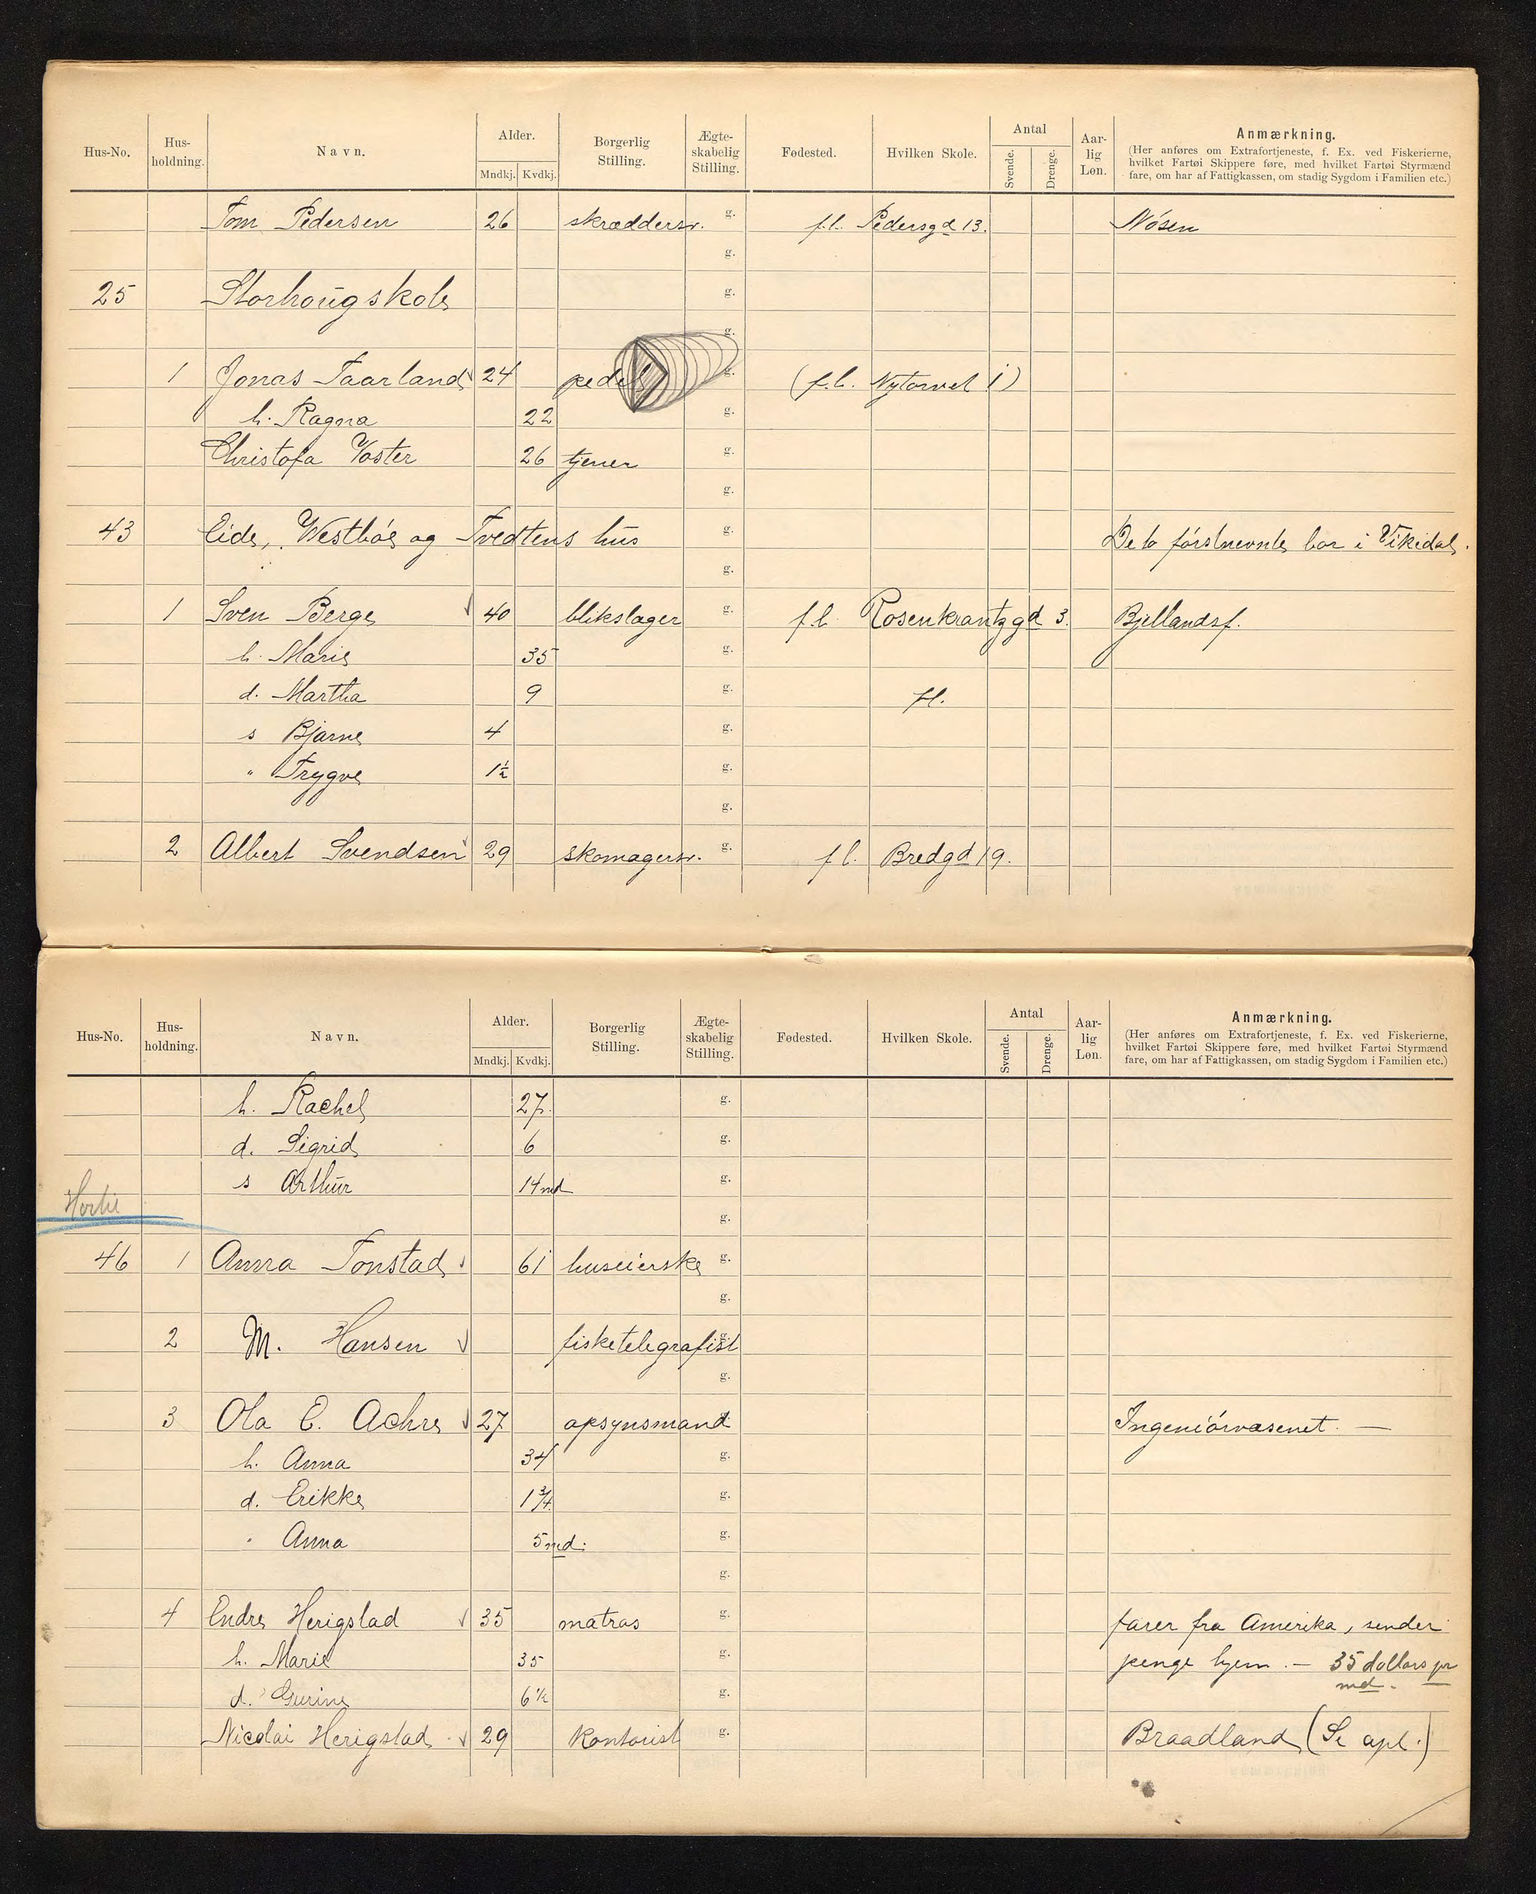 Hus-No. Hus-holdning. Navn. Alder. Mndkj. Kvdkj. Borgerlig Stilling. Ægte-skabelig Stilling. Fødested. Hvilken Skole. Antal Svende. Drenge. Aar-lig Løn. Anmærkning.
(Her anføres om Extrafortjeneste, f. Ex. ved Fiskerierne,
hvilket Fartøi Skippere føre, med hvilket Fartøi Styrmænd
fare, om har af Fattigkassen, om stadig Sygdom i Familien etc.)
Tom Pedersen 26 skræddersv. g. f.l. Pedersgd 13. Nósen
g.
25 Storhougskole g.
g.
1 Jonas Taarland 24 pedel g. (f.l. Nytorvet 1)
h. Ragna 22 g.
Christofa Voster 26 tjener g.
g.
43 Eide, Westbóe og Tvedtens hus g. De to fórstnevnte bor i Vikedal.
g.
1 Sven Berge 40 blikslager g. f.l. Rosenkrantzgd 3. Bjellandsf.
h. Marie 35 g.
d. Martha 9 g. fl.
s Bjarne 4 g.
" Trygve 1½ g.
g.
2 Albert Svendsen 29 skomagersv. g. f.l. Bredgd 19.
Hus-No. Hus-holdning. Navn. Alder. Mndkj. Kvdkj. Borgerlig Stilling. Ægte-skabelig Stilling. Fødested. Hvilken Skole. Antal Svende. Drenge. Aar-lig Løn. Anmærkning.
(Her anføres om Extrafortjeneste, f. Ex. ved Fiskerierne,
hvilket Fartøi Skippere føre, med hvilket Fartøi Styrmænd
fare, om har af Fattigkassen, om stadig Sygdom i Familien etc.)
h. Rachel 27. g.
d. Sigrid 6 g.
s Arthur 14 md g.
g.
46 1 Anna Tonstad 61 huseierske g.
g.
2 M. Hansen fisketelegrafist g.
g.
3 Ola E. Achre 27 opsynsmand g. Ingeniórvæsenet. —
h. Anna 34 g.
d. Erikke 1 3/4 g.
" Anna 5 md. g.
g.
4 Endre Herigstad 35 matros g. farer fra Amerika, sender
h. Marie 35 g. penge hjem. — 35 dollars pr
d. Gurine 6½ md.
Nicolai Herigstad 29 kontorist g. Braadland (Se apl.)